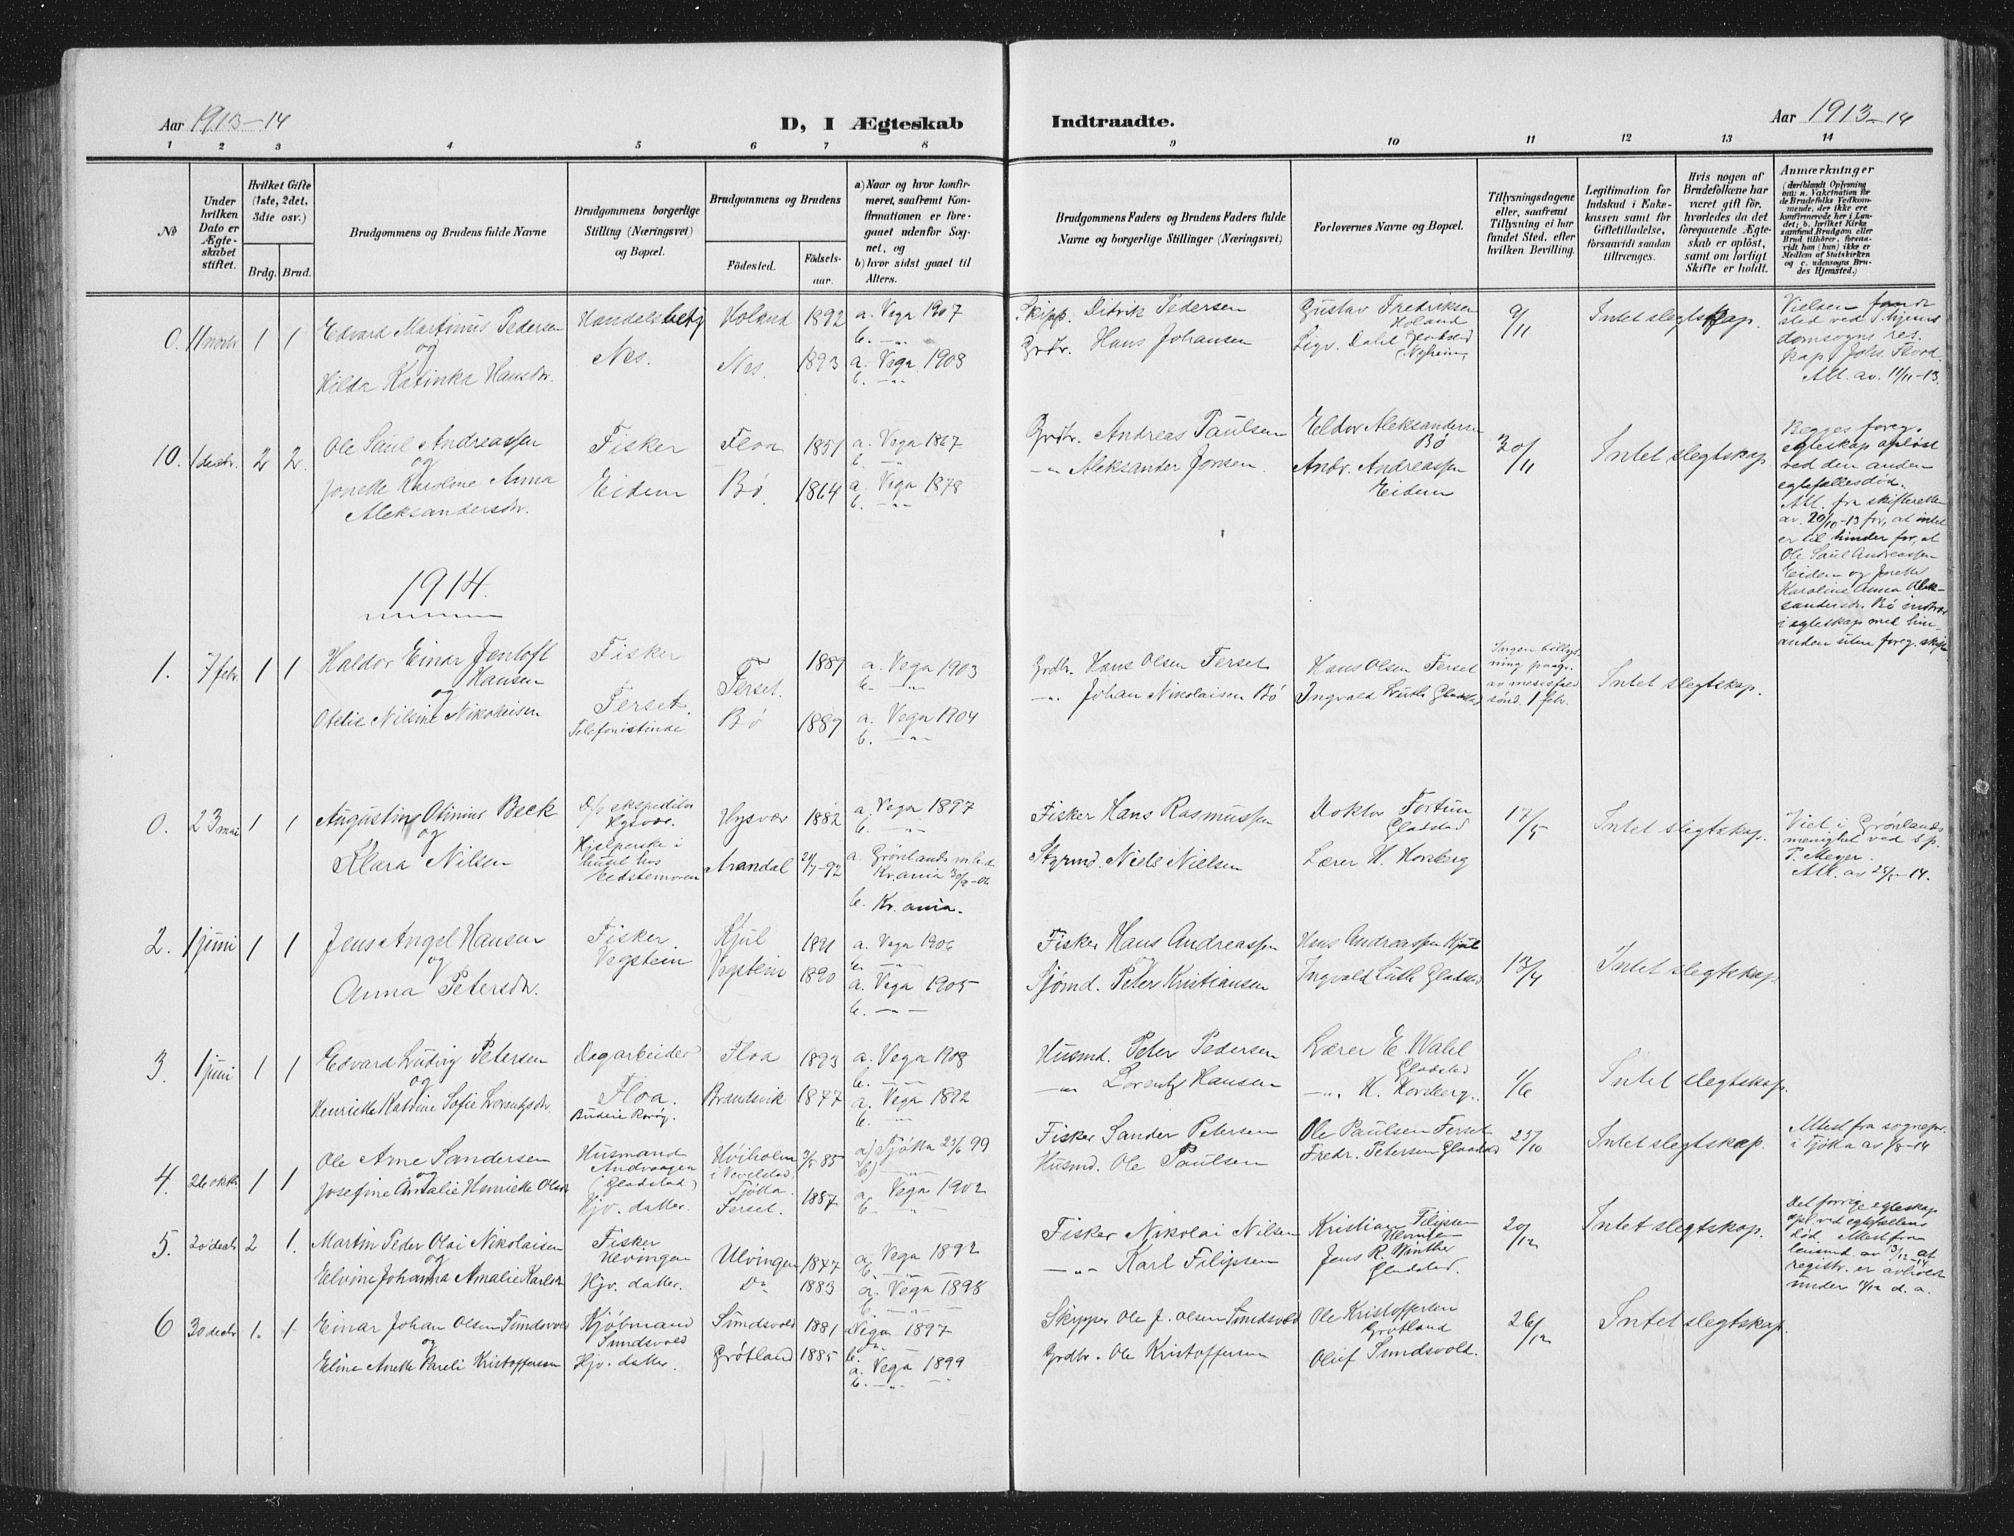 Aar 1913-14
D, I Ægteskab
Indtraadte.
Aar 1913-14
1 2 3 4 5 6 7 8 9 10 11 12 13 14
No
Under hvilken Dato er Ægteskabet stiftet.
Hvilket Gifte (1ste, 2det, 3die osv.)
Brdg. Brud.
Brudgommens og Brudens fulde Navne
Brudgommens borgerlige Stilling (Næringsvei) og Bopæl.
Brudgommens og Brudens
Fødested.
Fødselsaar.
a) Naar og hvor konfirmeret, saafremt Konfirmationen er foregaaet udenfor Sognet, og
b) hvor sidst gaaet til Alters.
Brudgommens Faders og Brudens Faders fulde Navne og borgerlige Stillinger (Næringsvei)
Forlovernes Navne og Bopæl.
Tillysningsdagene eller, saafremt Tillysning ei har fundet Sted, efter hvilken Bevilling.
Legitimation for Indskud i Enkekassen samt for Giftetilladelse, forsaavidt saadan tiltrænges.
Hvis nogen af Brudefolkene har været gift før, hvorledes da det foregaaende Ægteskab er opløst, samt om lovligt Skifte er holdt.
Anmærkninger
0. 11 novbr 1 1
Edvard Martinus Pedersen
og
Hilda Katinka Hansdr.
Handelsbetj
Nes.
Holand 1892
a. Vega 1907
b. -"-
Nes. 1893
a. Vega 1908
b. -"-
Skipp. Didrik Pedersen
Grdbr. Hans Johansen
Gustav Fredriksen
Holand
Sigv. Dahl Gladstad
(Nyheim)
9/11
Intet slegtskap.
Vielsen fandt
sted ved
domsogns res.
kap. Johs. Flood.
Att. av. 11/11-13.
10. 1 decbr. 2 2.
Ole Saul Andreassen
og
Jonette Karoline Anna
Aleksandersdr.
Fisker
Eidem
Floa 1851
a. Vega 1867
b. -"-
Bø 1864
a. Vega 1878
b. -"-
Grdbr. Andreas Paulsen
-"- Aleksander Jonsen.
Eldor Aleksandersen
Bø
Andr. Andreassen
Eidem
30/11
Intet slegtskap.
Begges foreg.
egteskap opløst
ved den anden
egtefælles død.
Att. fra skifteretten
av. 20/10-13 for, at intet
er til hinder for, at
Ole Saul Andreassen
Eidem og Jonette
Karoline Anna Alek-
sandersdr. Bø indtræ
i egteskap med hin-
anden uten foreg. skifte
1914.
1. 7 febr. 1 1
Haldor Einar Jentoft
Hansen
og
Otelie Nilsine Nikolaisen
Fisker
Ferset.
Telefonistinde
Ferset 1889
a. Vega 1903
b. -"-
Bø 1889
a. Vega 1904
b. -"-
Grdbr. Hans Olsen Ferset
-"- Johan Nikolaisen Bø
Hans Olsen Ferset
Ingvald Luth Gladstad
Ingen tillys-
ning paagr.
av messefald
sønd. 1 febr.
Intet slegtskap.
0. 23 mai 1 1
Augustinus Otinius Beck
og
Klara Nilsen
D/s ekspeditør
Hysvær.
Hjelperske i
huset hos
Hysvær 1882
a. Vega 1897
b. -"-
Arendal
a. Grønlands mh.
b. Kr.ania.
Fisker Hans Rasmussen
Styrmd. Niels Nielsen
Doktor Fortun
Gladstad
Lærer H. Horsberg
17/5
Intet slegtskap.
Viet i Grønlands
menighet ved sp.
P. Meyer.
Att. av 25/5-14.
2. 1 juni 1 1
Jens Angel Hansen
og
Anna Petersdr.
Fisker.
Vegstein
Kjul 1891
a. Vega 1906
b. -"-
Vegstein 1890
a. Vega 1905
b. -"-
Fisker Hans Andreassen
Sjømd. Peter Kristiansen
Hans Andreassen Kjul
Ingvald Luth Gladstad
13/4
Intet slegtskap.
3. 1 juni 1 1
Edvard Ludvig Petersen
og
Henriette Katrine Sofie Lorentsdr.
Dagarbeider
Floa.
Budeie
Floa 1893
a. Vega 1908
b. -"-
Brandvik 1877
a. Vega 1892
b. -"-
Husmd. Peter Pedersen
-"- Lorents Hansen
Lærer E. Wahl
Gladstad
-"- H. Horsberg.
1/6
Intet slegtskap.
4. 26 oktbr 1 1
Ole Arne Sandersen
og
Josefine Amalie Henriette Olsdr
Husmand
Andvaagen
(Gladstad)
Hjv. datter.
Hviholm
i Vevelstad,
Tjøtta.
3/5 85
a) Tjøtta 25/6 99
b) -"-
Ferset. 1887
a. Vega 1902
b. -"-
Fisker Sander Petersen
Husmd. Ole Paulsen
Ole Paulsen Ferset
Fredr. Petersen Gladstad
25/10
Intet slegtskap.
Attest fra sognepr.
i Tjøtta av 5/8-14
5. 20 decbr 2 1.
Martin Peder Olai Nikolaisen
og
Elvine Johanna Amalie Karlsdr
Fisker
Ulvingen
Hjv. datter.
Ulvingen 1877
a. Vega 1892
b. -"-
Do 1883
a. Vega 1898
b. -"-
Fisker Nikolai Nilsen
-"- Karl Filipsen
Kristian Filipsen
Ulvingen
Jens R. Winther
Gladstad.
20/12
Intet slegtskap.
Det forrige egteskap
opl. ved egtefællens
død. Attest fra
lensmd av 13/12 14 at
registr. er avholdt
under 11/12 d. a.
6 30 decbr 1. 1
Einar Johan Olsen Sundsvold
og
Eline Anette Pareli Kristoffersen
Kjøbmand
Sundsvold
Hjv. datter.
Sundsvold 1881
a. Vega 1897
b. -"-
Grøtland 1885
a. Vega 1899
b. -"-
Skipper Ole J. Olsen Sundsvold
Grdbr. Ole Kristoffersen
Ole Kristoffersen
Grøtland
Oluf Sundsvold.
26/12
Intet slegtskap.